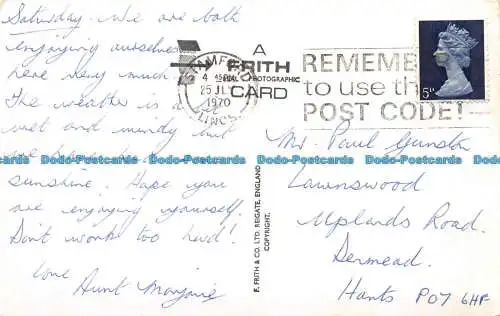 Saturday. We are both
enjoying ourselves
here very much.
The weather is a bit
wet and windy but
we have had
sunshine. Hope you
are enjoying yourself.
Don't work too hard!
love
Aunt Marjorie
A
FRITH
PHOTOGRAPHIC
CARD
STAMFORD
25 JLY
1970
LINCS
REMEMBER
to use the
POST CODE!
5D
F. FRITH & CO. LTD. REIGATE, ENGLAND
COPYRIGHT.
Mr. Paul
Lawnswood
Uplands Road.
Denmead.
Hants PO7 6HF
Bob-Postcards Bob-Postcards Bob-Postcards Bob-Postcards